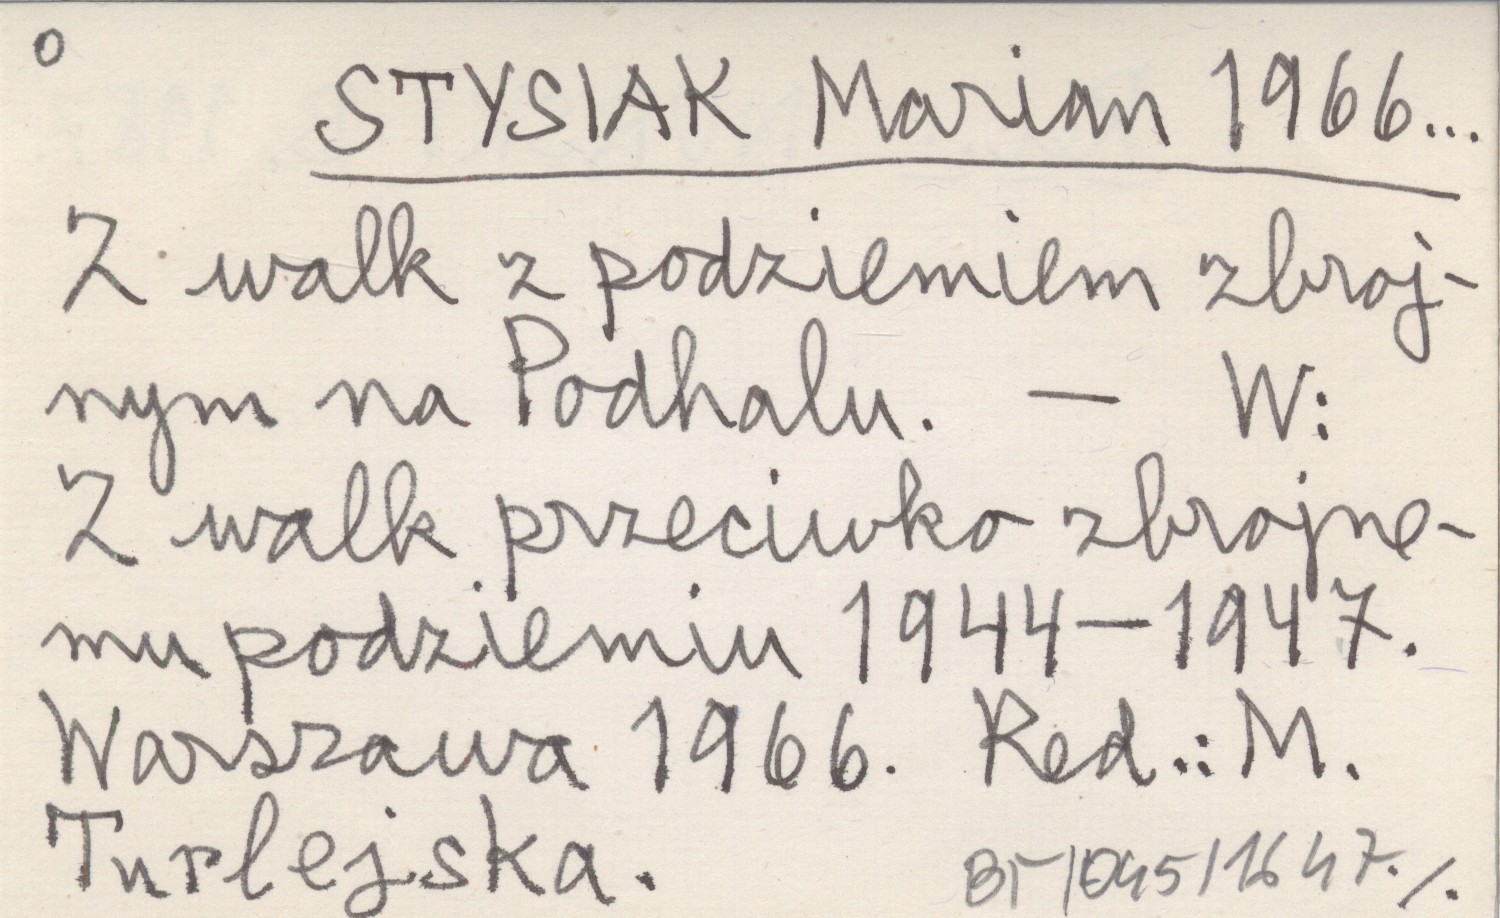 o
STYSIAK Marian 1966...
Z walk z podziemiem zbroj-
nym na Podhalu. — W:
Z walk przeciwko zbrojne-
mu podziemiu 1944—1947.
Warszawa 1966. Red.: M.
Turlejska.